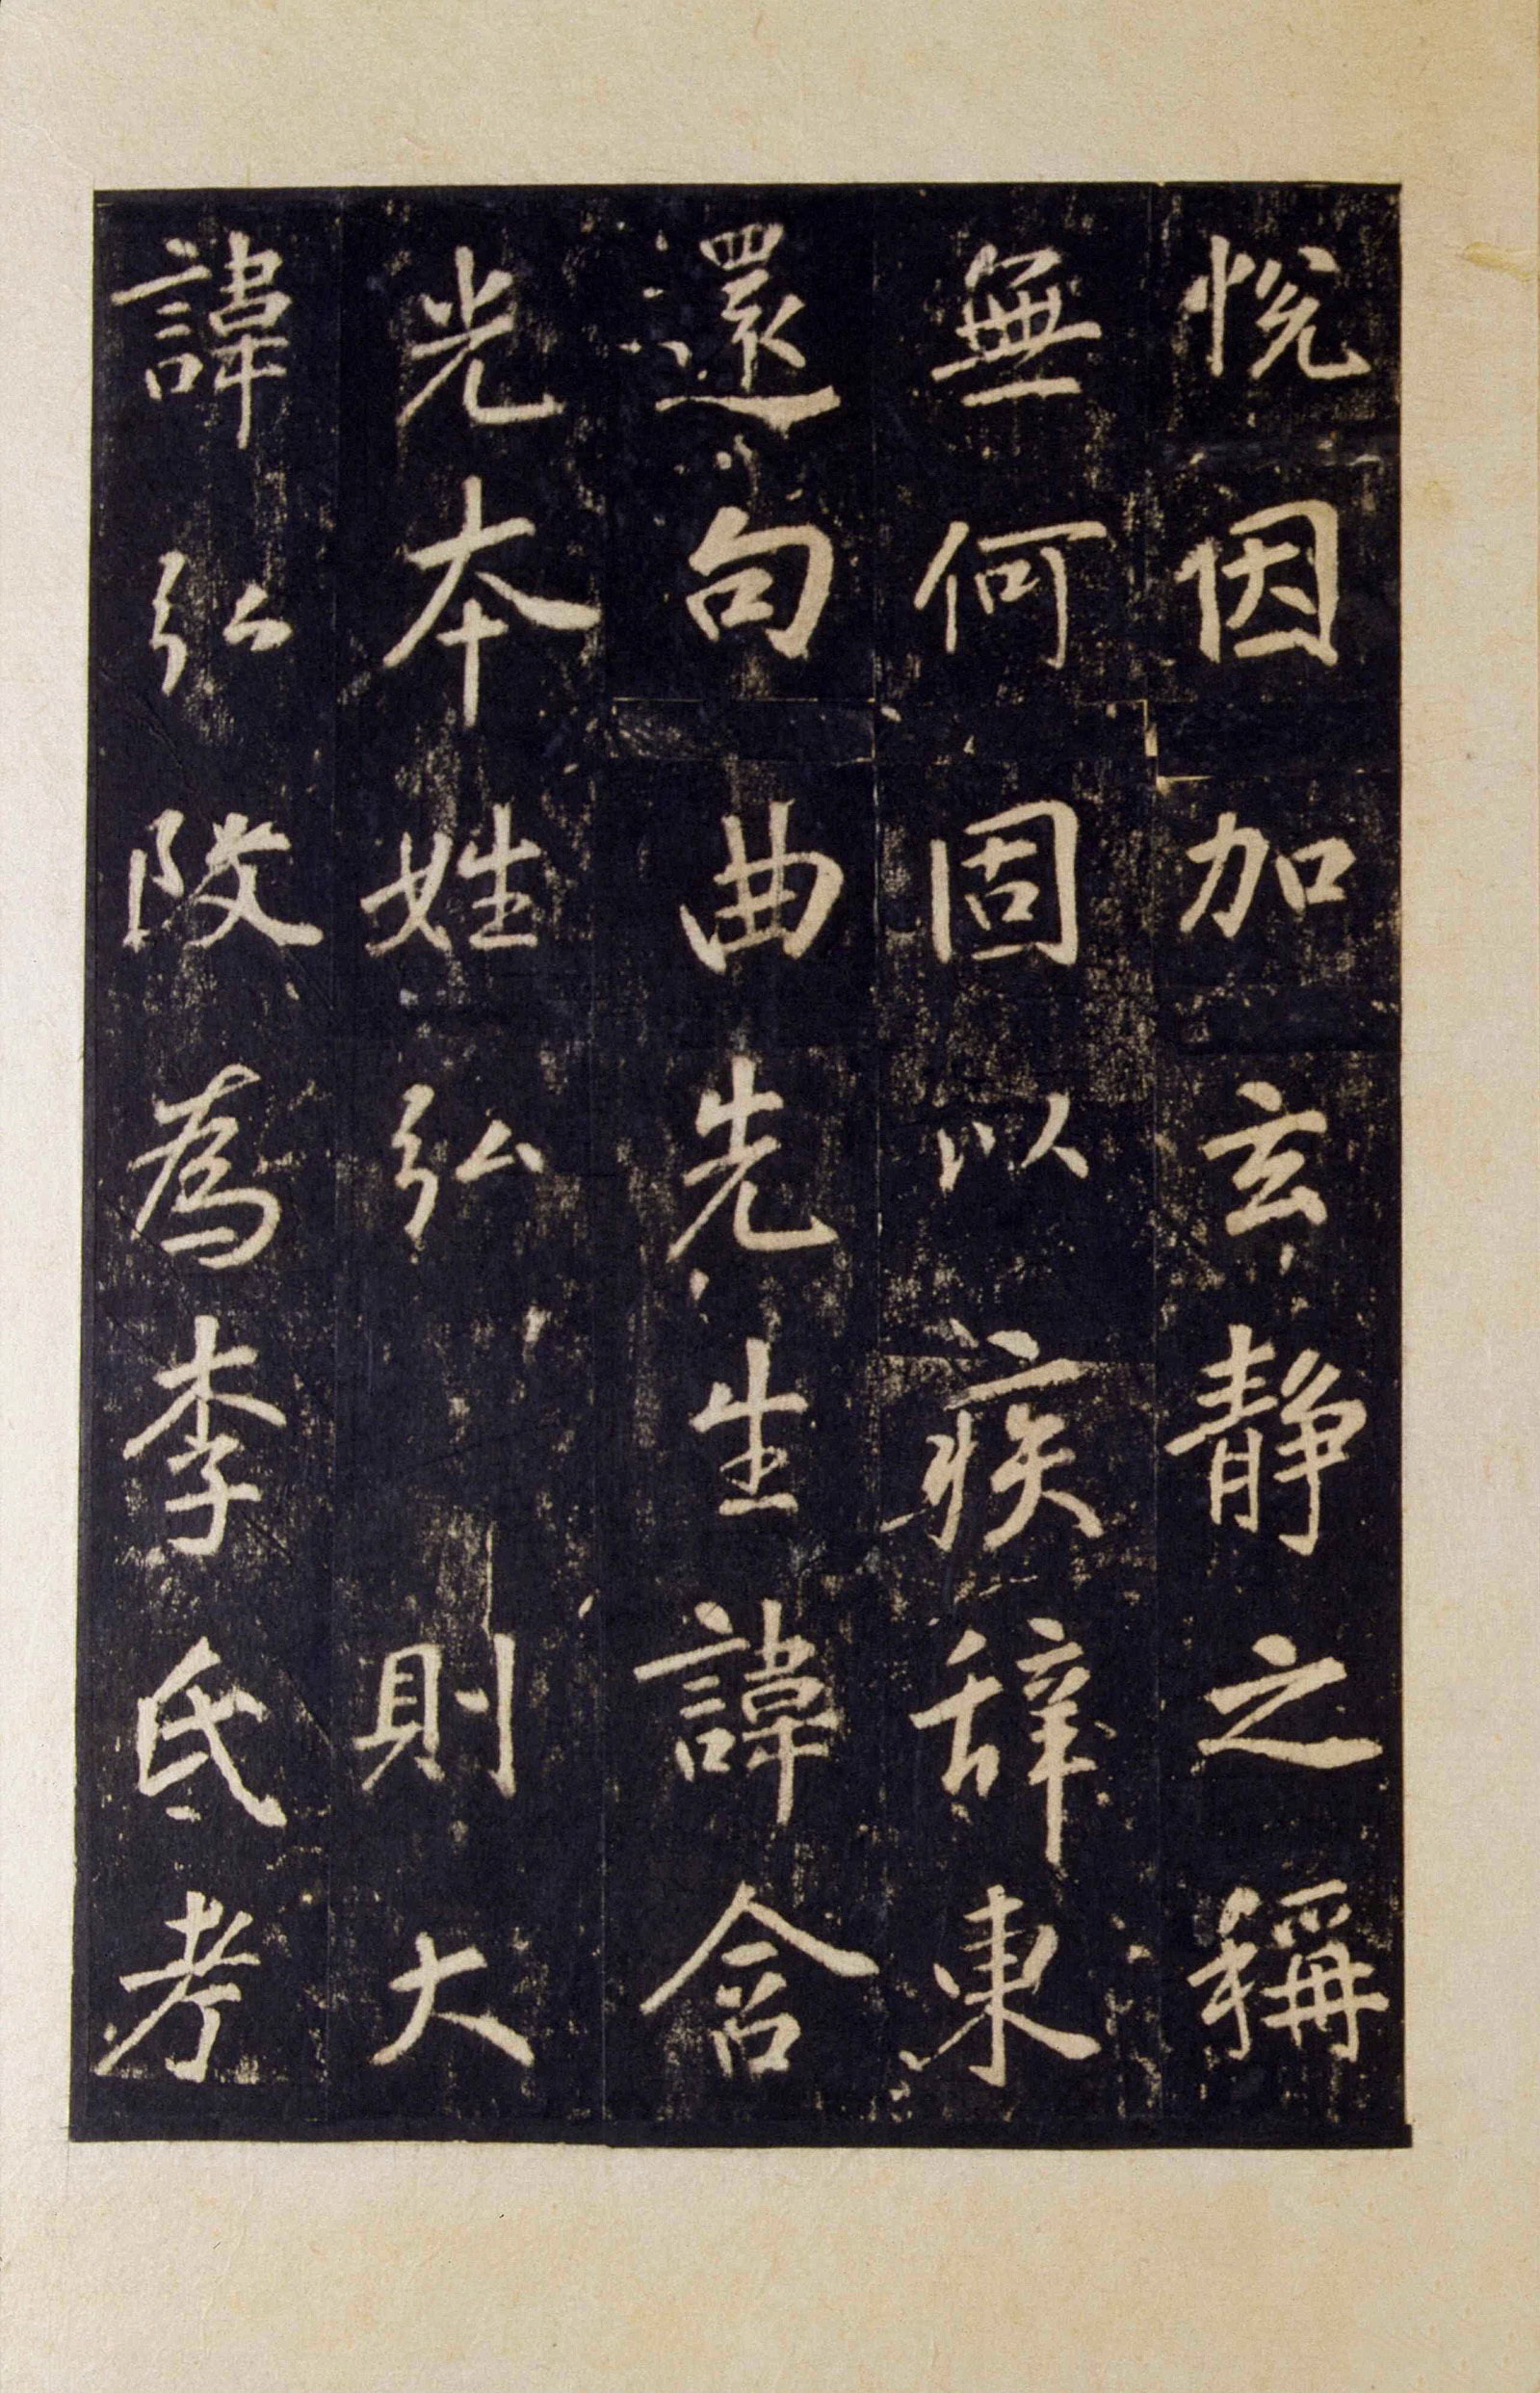 悅因加玄靜之稱
無何固以疾辭東
還句曲先生諱含
光本姓弘則大
諱弘改為李氏考